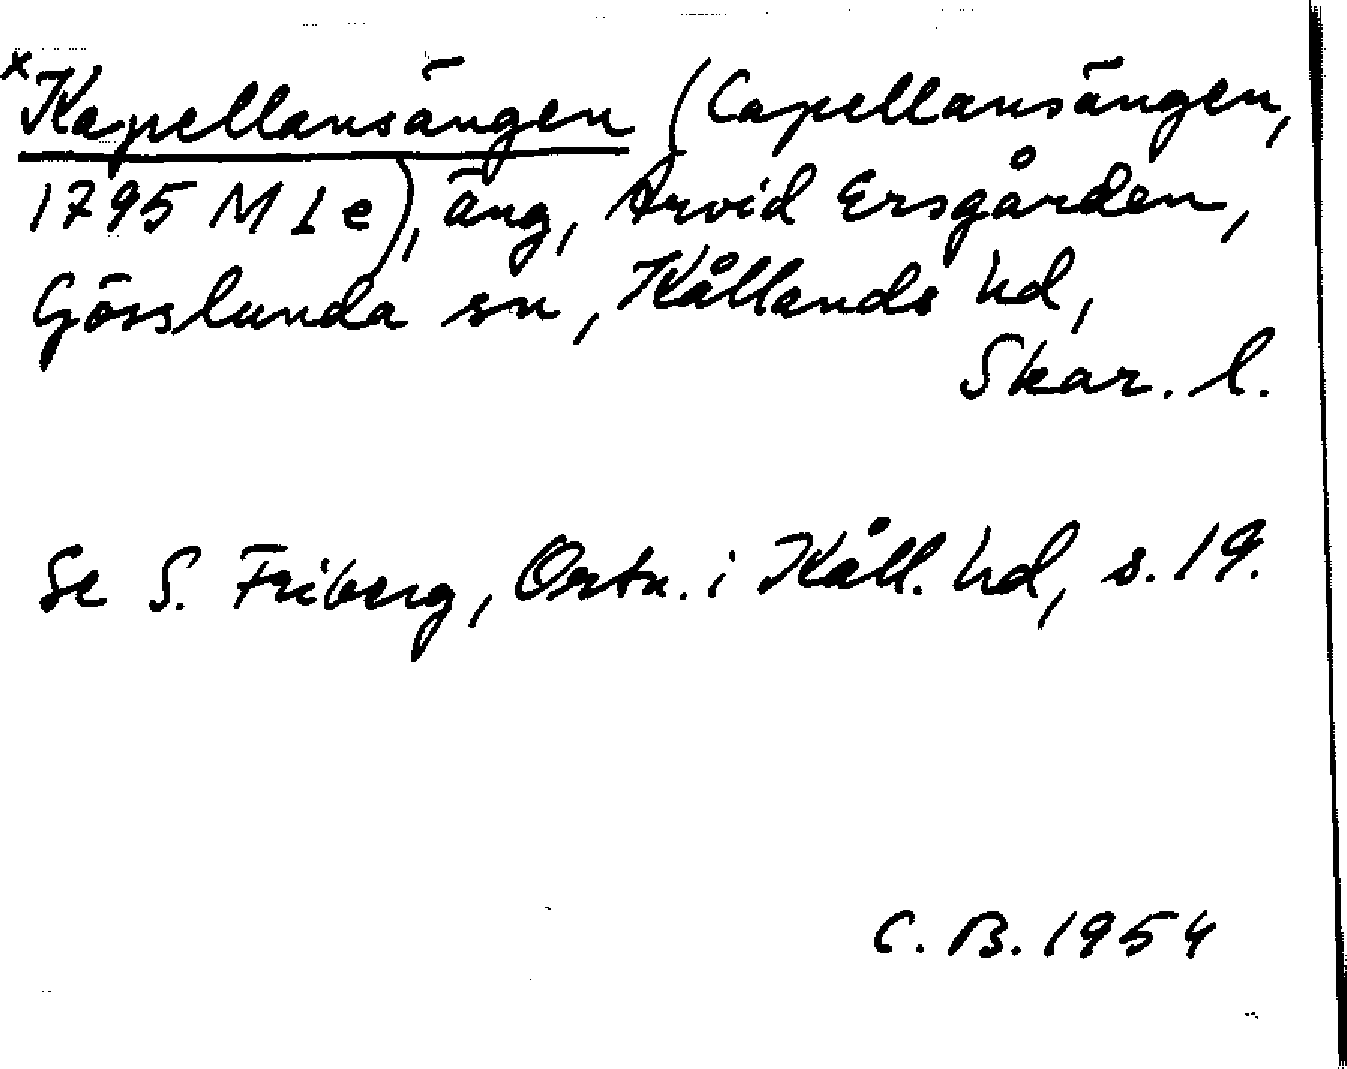 ×Kapellansängen (Capellansängen,
1795 M L e), äng, Arvid Ersgården,
Gösslunda sn, Kållands hd,
Skar. l.
Se S. Friberg, Ortn. i Kåll. hd, s. 19.
C. B. 1954